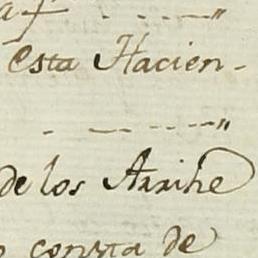 Esta Hacien-
de los Arrihe
consta de